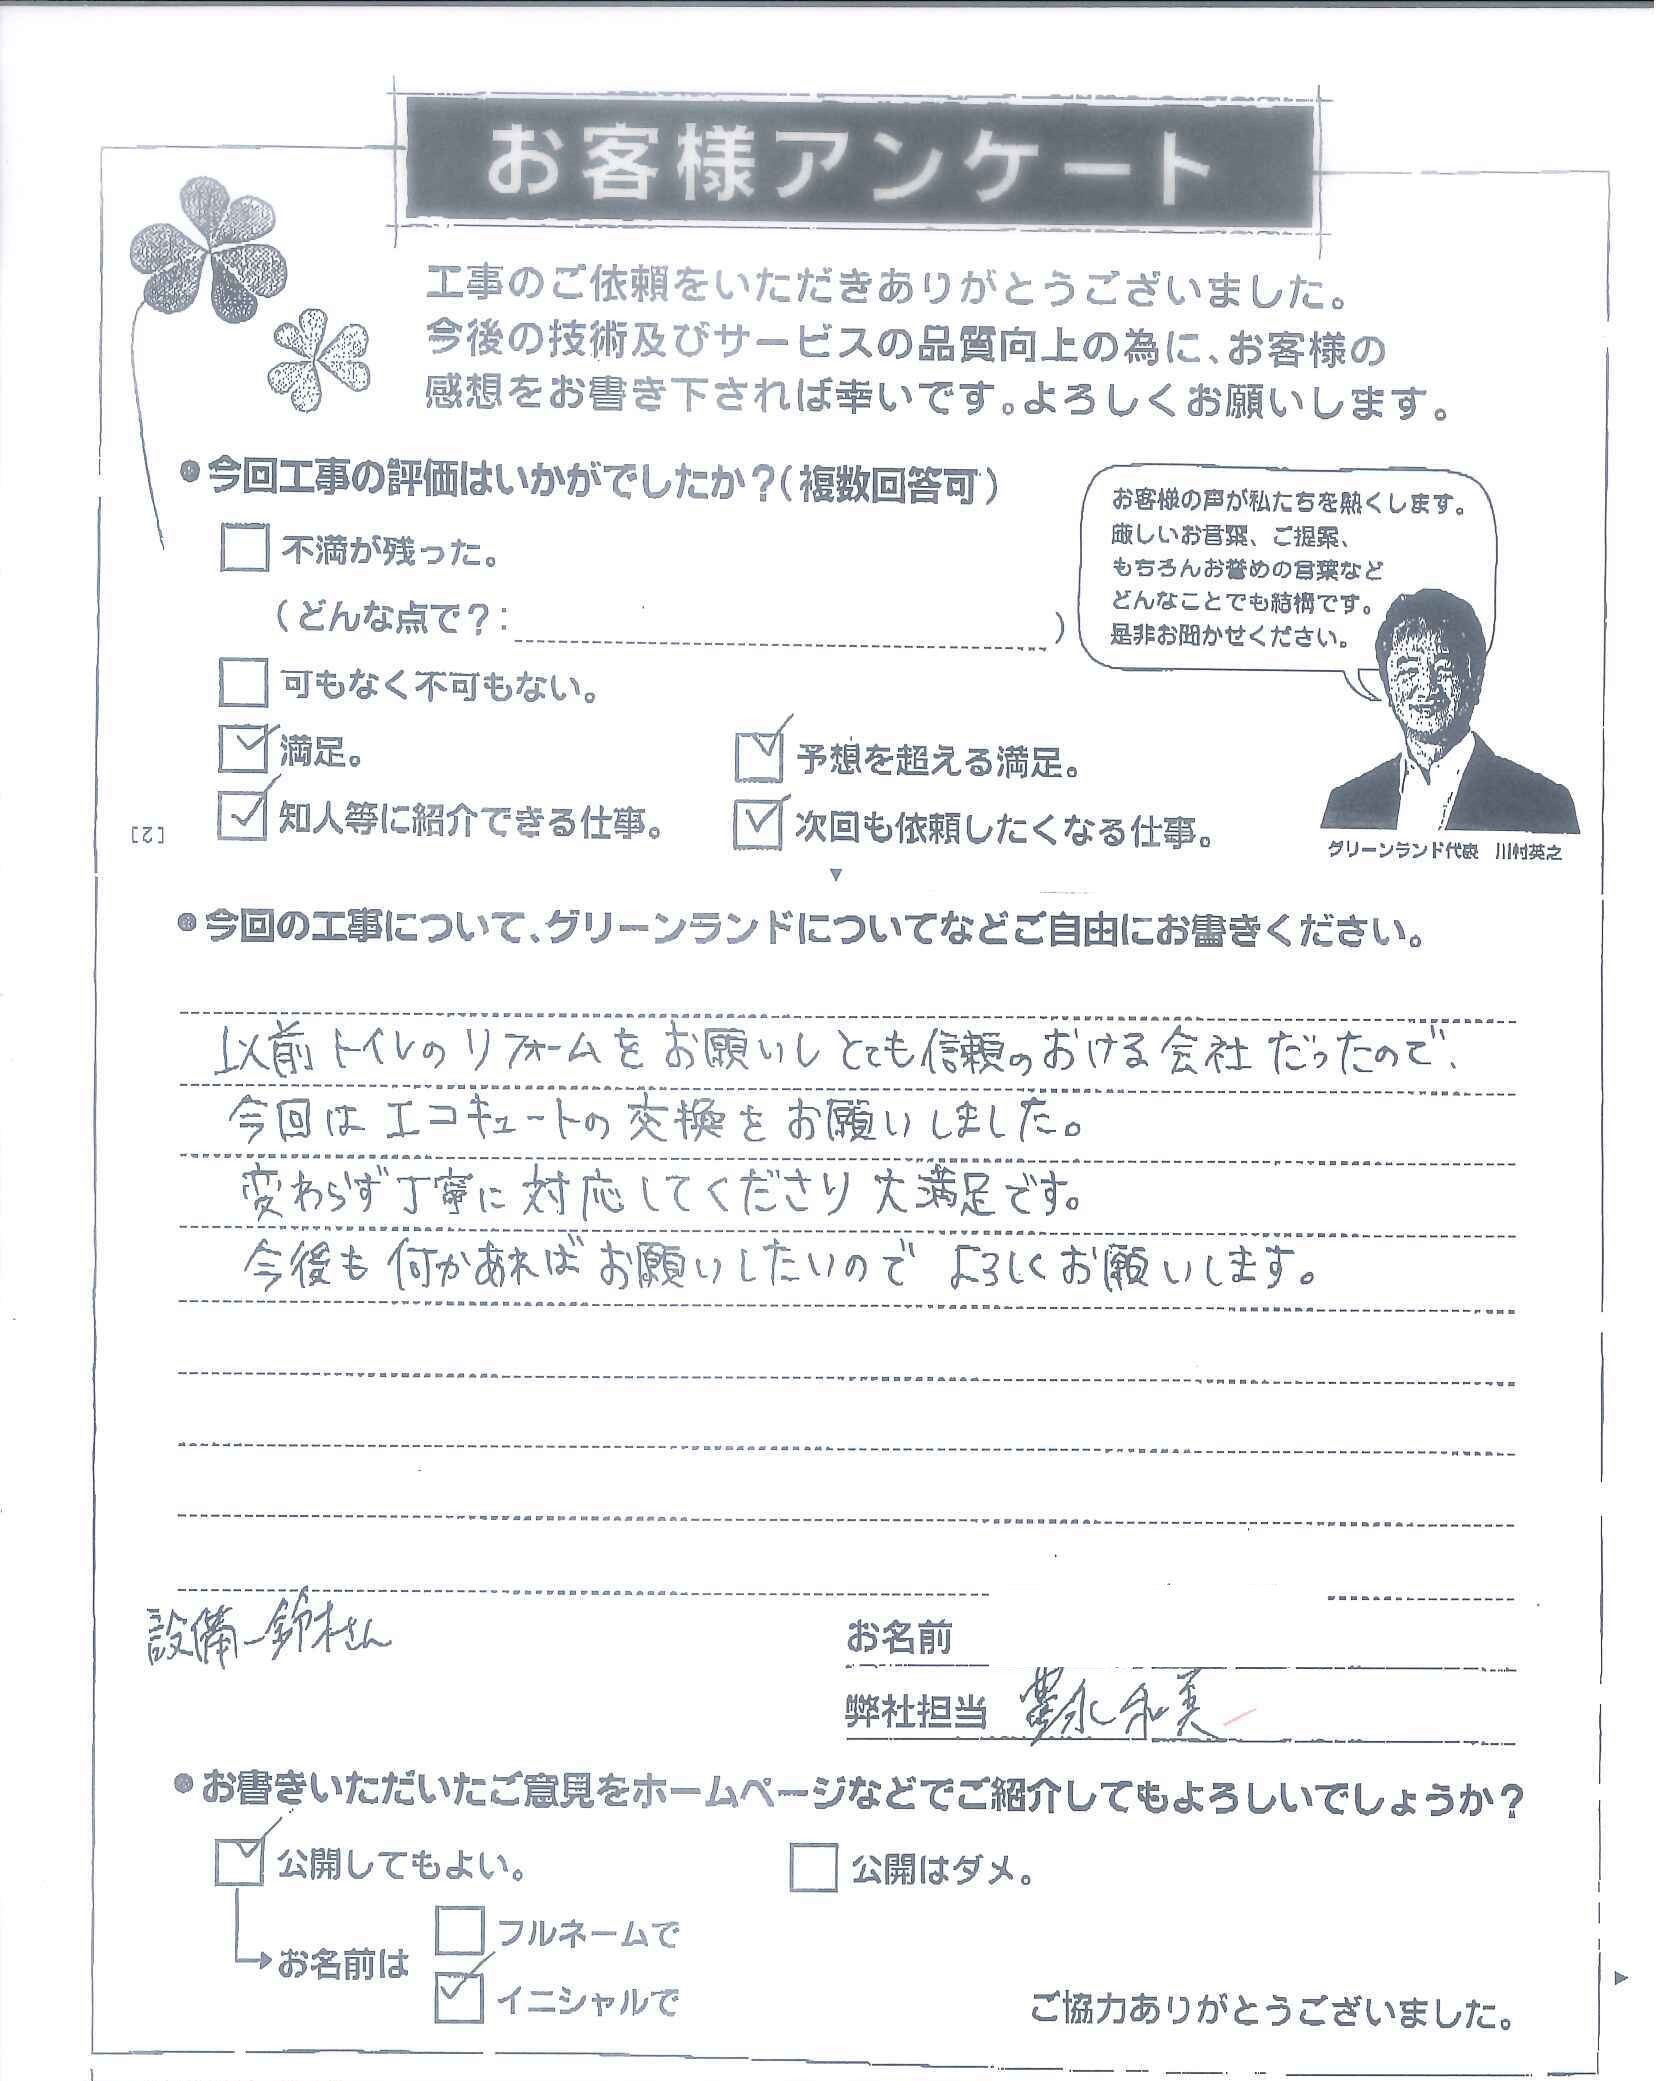 お客様アンケート
工事のご依頼をいただきありがとうございました。
今後の技術及びサービスの品質向上の為に、お客様の
感想をお書き下されば幸いです。よろしくお願いします。
●今回工事の評価はいかがでしたか？（複数回答可）
不満が残った。
（どんな点で？：　）
可もなく不可もない。
満足。
予想を超える満足。
知人等に紹介できる仕事。
次回も依頼したくなる仕事。
お客様の声が私たちを熱くします。
厳しいお言葉、ご提案、
もちろんお誉めの言葉など
どんなことでも結構です。
是非お聞かせください。
グリーンランド代表　川村英之
[2]
●今回の工事について、グリーンランドについてなどご自由にお書きください。
以前トイレのリフォームをお願いしとても信頼のおける会社だったので、
今回はエコキュートの交換をお願いしました。
変わらず丁寧に対応してくださり大満足です。
今後も何かあればお願いしたいのでよろしくお願いします。
設備ー鈴木さん
お名前
弊社担当 永和美
●お書きいただいたご意見をホームページなどでご紹介してもよろしいでしょうか？
公開してもよい。
公開はダメ。
お名前は
フルネームで
イニシャルで
ご協力ありがとうございました。